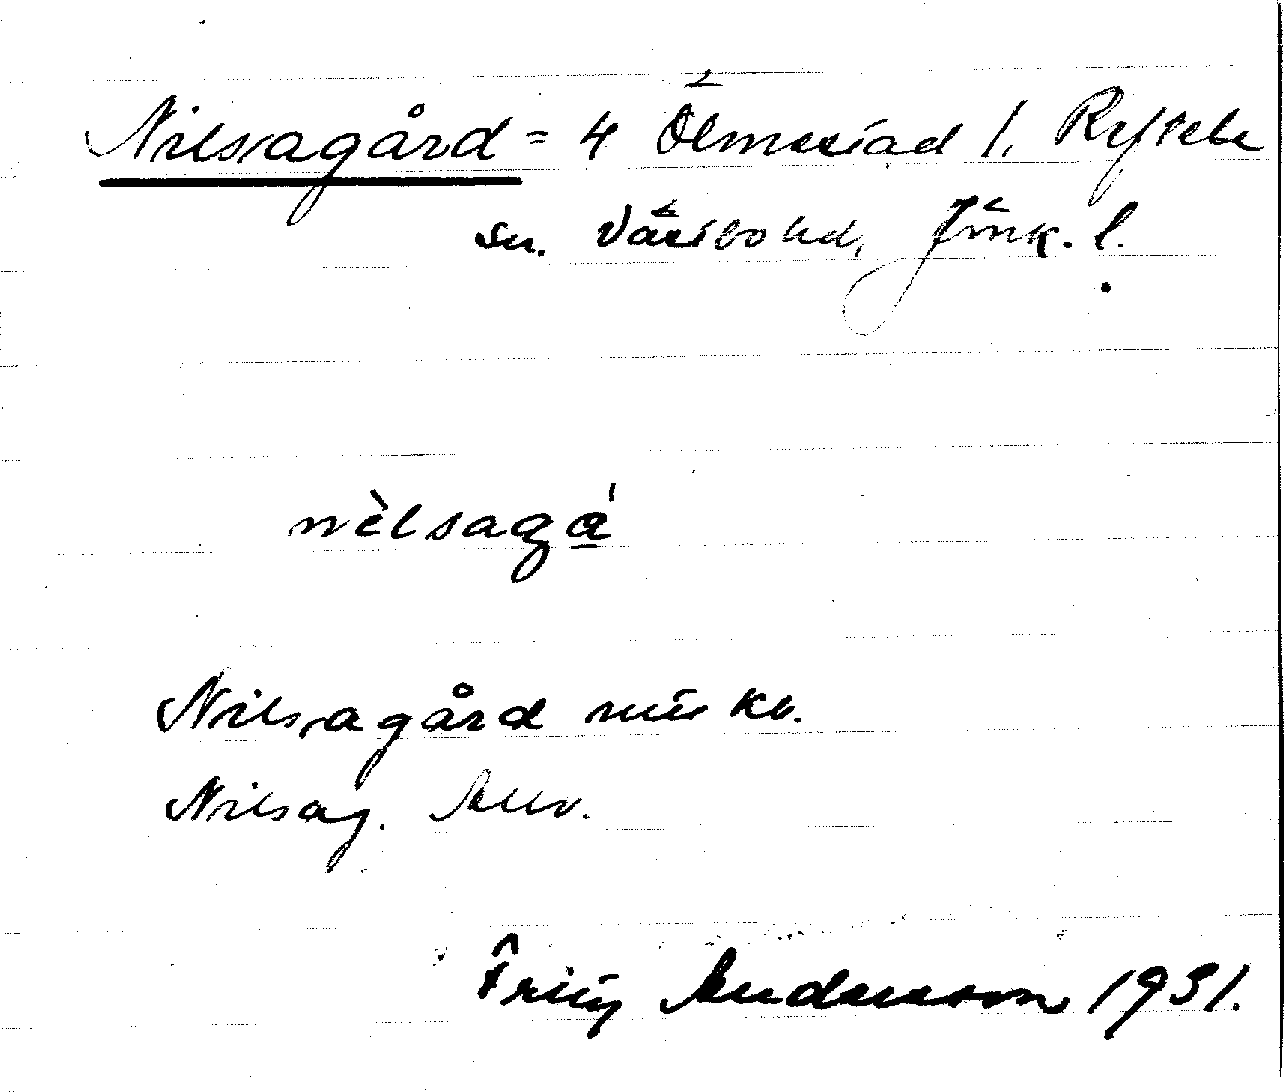 Nilsagård = 4 Ölmestad 1. Reftele
sn. Västbo hd, Jönk. l.
nèlsagá̱
Nilsagård mtskb.
Nilsag.
Fritz Andersson 1931.